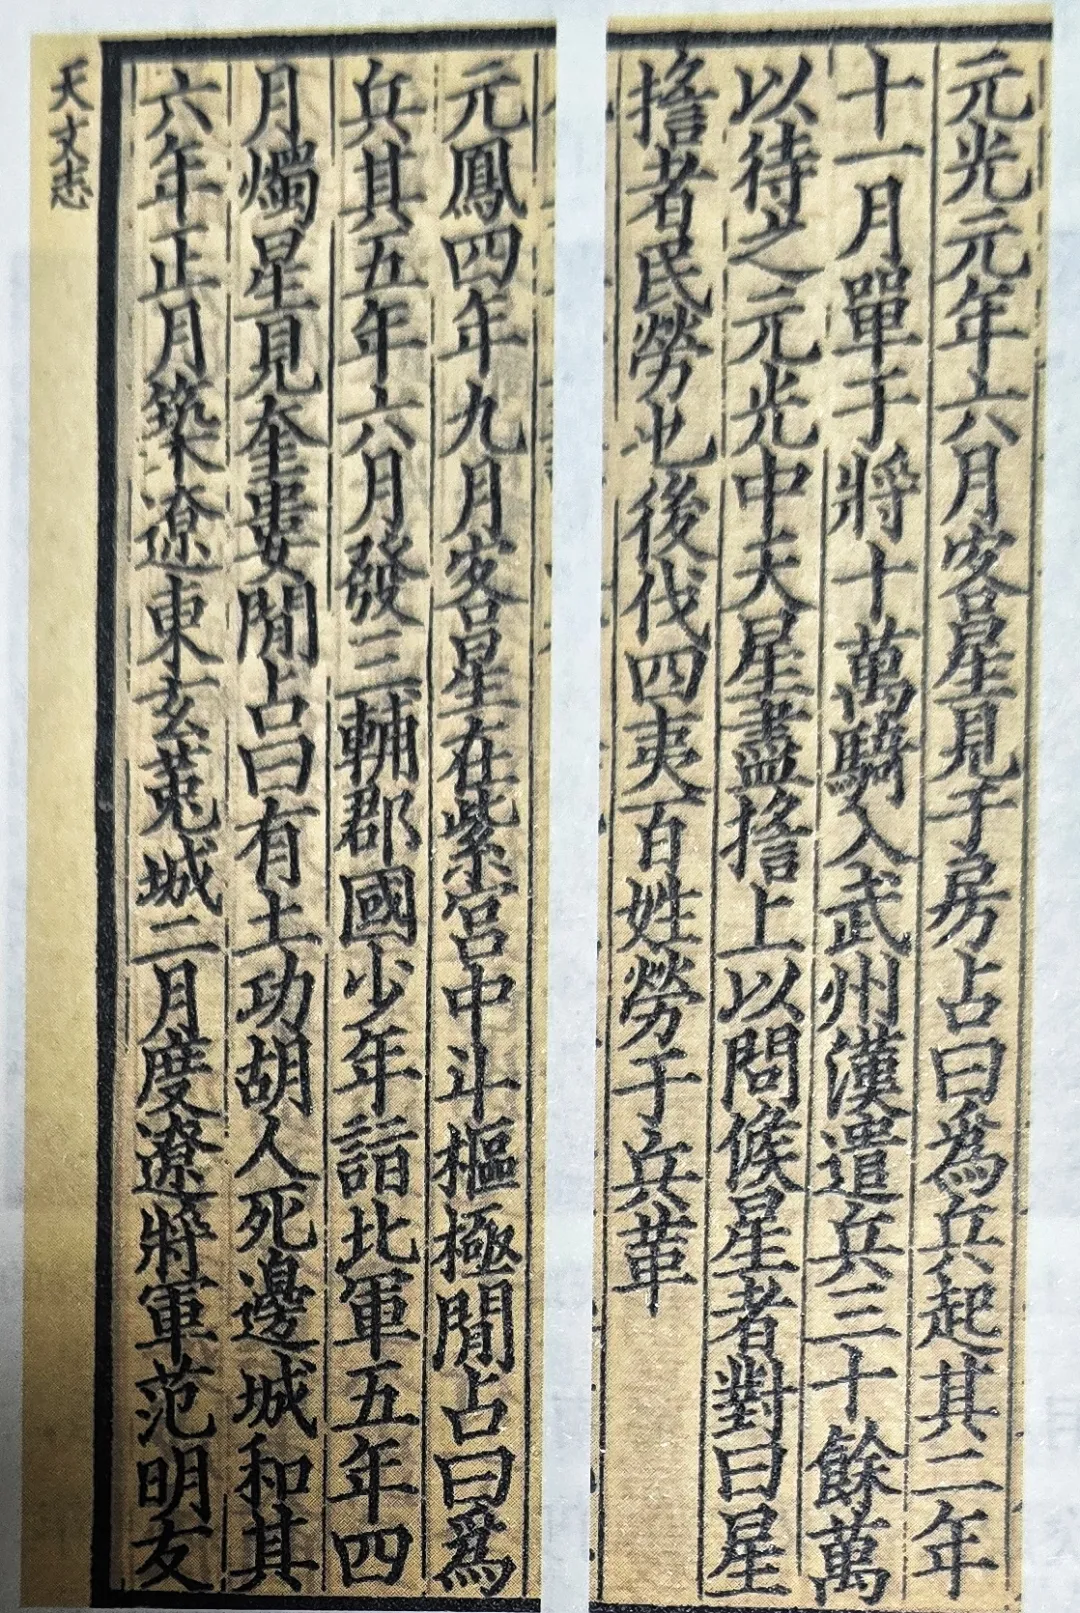 元光元年六月客星見于房占曰爲兵起其二年
十一月單于將十萬騎入武州漢遣兵三十餘萬
以待之元光中天星盡搖上以問候星者對曰星
搖者民勞也後伐四夷百姓勞于兵革
元鳳四年九月客星在紫宮中斗樞極閒占曰爲
兵其五年六月發三輔郡國少年詣北軍五年四
月燭星見奎婁閒占曰有土功胡人死邊城和其
六年正月築遼東玄菟城二月度遼將軍范明友
天文志